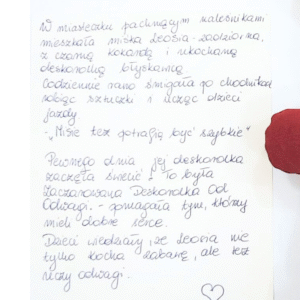 W miasteczku pachnącym malinkami
mieszkała miśka Leosia - zadziorna,
z czarną kokardą i ukochaną
deskorolką błyskawicą
Codziennie rano śmigała po chodnikach
robiąc sztuczki i ucząc dzieci
jazdy
- „Misie też potrafią być szybkie"
Pewnego dnia jej deskorolka
zaczęła świecić - To była
Zaczarowana Deskorolka Od
Odwagi. - pomagała tym, którzy
mieli dobre serce.
Dzieci wiedziały, że Leosia nie
tylko kocha zabawę, ale też
uczy odwagi.